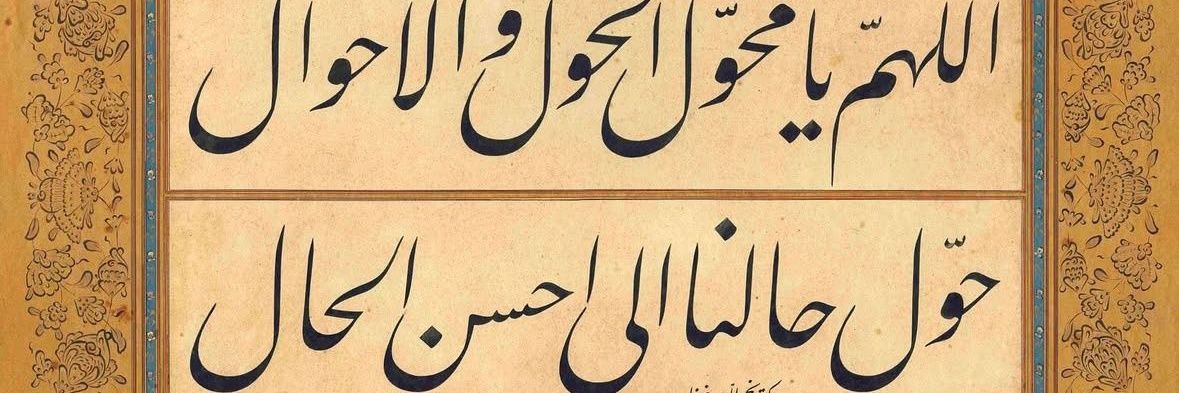 اللهمّ يا محوّل الحول والاحوال
حوّل حالنا الى احسن الحال